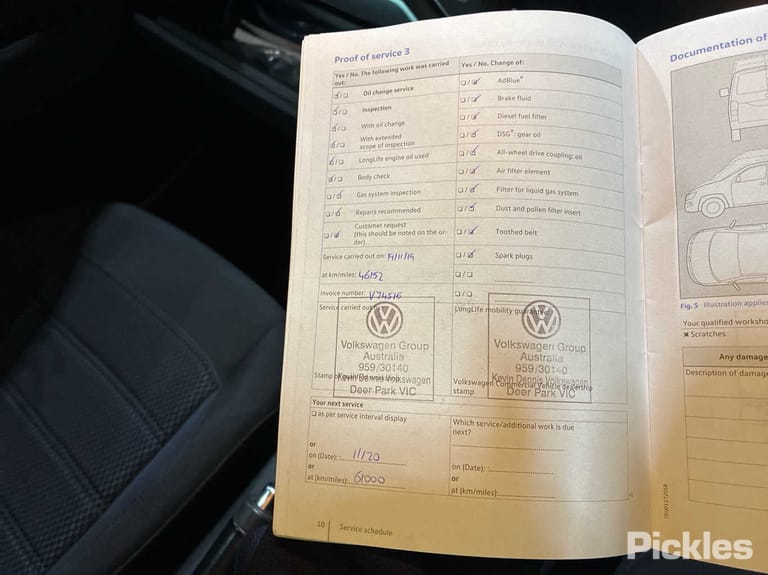 Proof of service 3
Yes / No. The following work was carried
out:
Oil change service
Inspection
With oil change
With extended
scope of inspection
LongLife engine oil used
Body check
Gas system inspection
Repairs recommended
Customer request
(this should be noted on the or-
der)
Service carried out on: 19/11/19
at km/miles: 46152
Invoice number: V74515
Service carried out
Volkswagen Group
Australia
959/30140
Kevin Dennis Volkswagen
Deer Park VIC
Stamp
Yes / No. Change of:
AdBlue®
Brake fluid
Diesel fuel filter
DSG®: gear oil
All-wheel drive coupling: oil
Air filter element
Filter for liquid gas system
Dust and pollen filter insert
Toothed belt
Spark plugs
LongLife mobility guarantee:
Volkswagen Group
Australia
959/30140
Kevin Dennis Volkswagen
Deer Park VIC
Volkswagen Commercial Vehicle dealership
stamp
Your next service
as per service interval display
or
on (Date): 11/20
or
at (km/miles): 61000
Which service/additional work is due
next?
on (Date):
or
at (km/miles)
10 Service schedule
Documentation of
Fig. 5 Illustration applies
Your qualified worksho
× Scratches
Any damage
Description of damag
Pickles